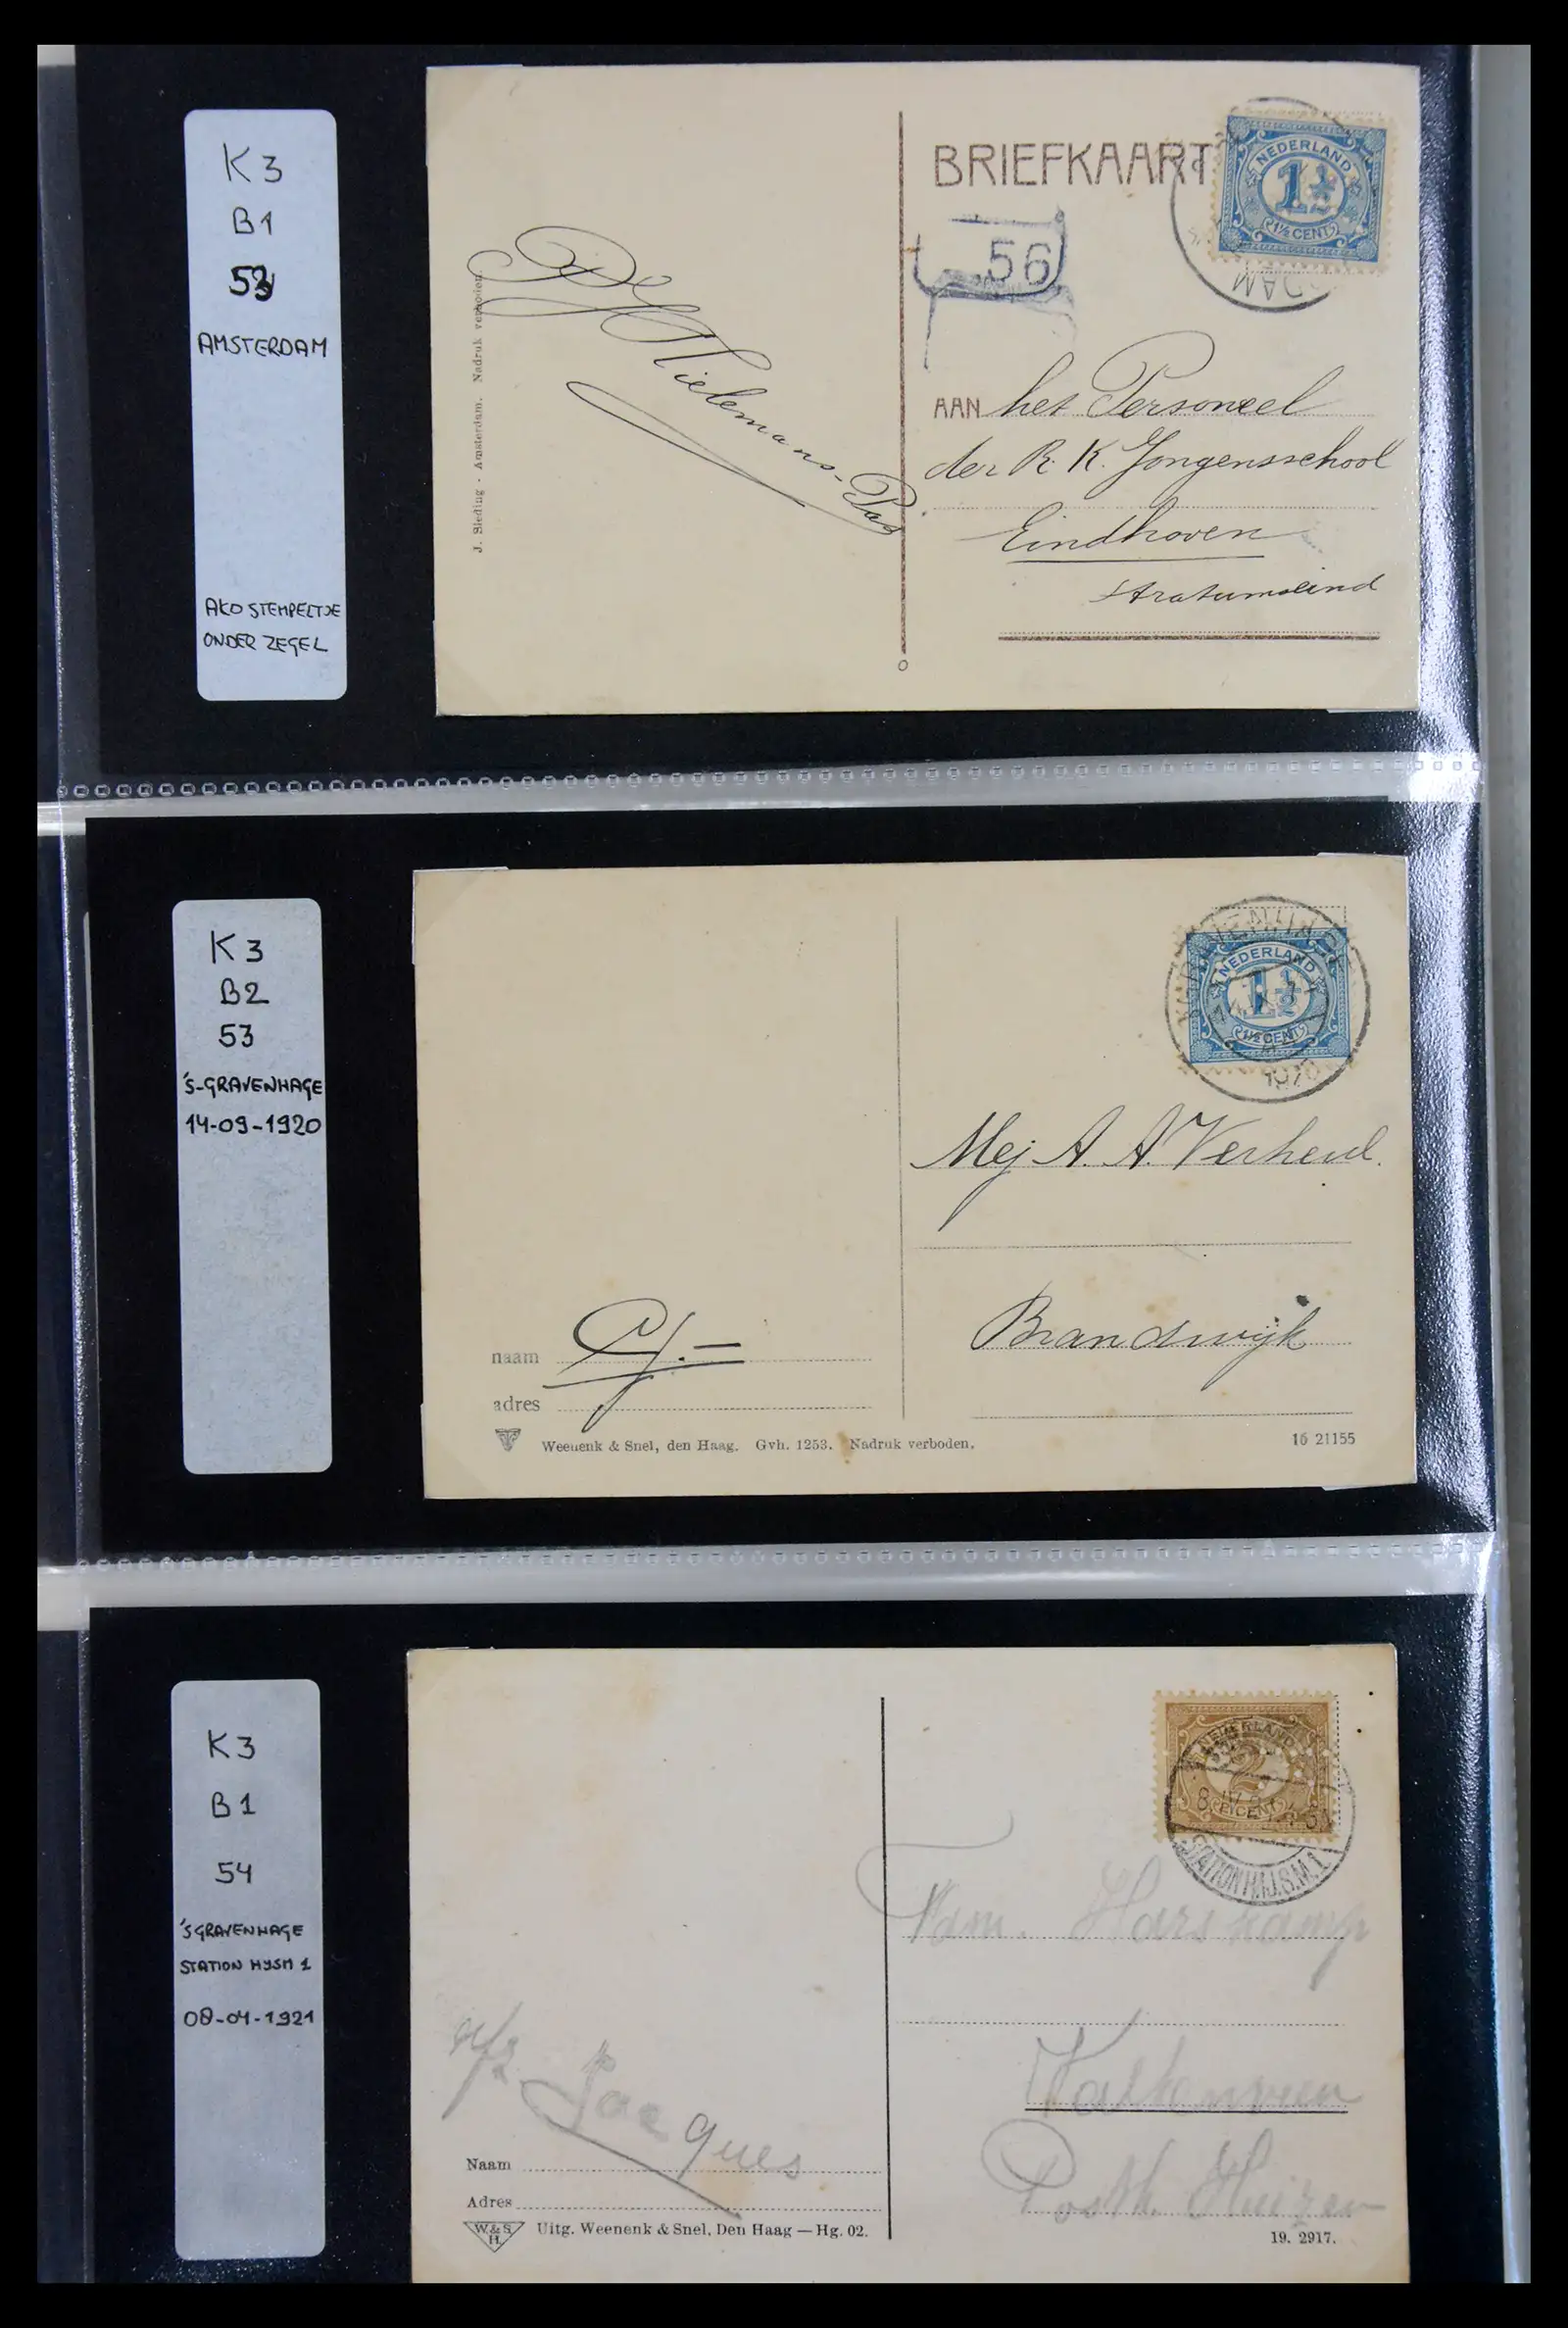 K3
B1
53
AMSTERDAM
AKO STEMPELTJE
ONDER ZEGEL
J. Sleding - Amsterdam. Nadruk verboden.
Tielemans-Pas
BRIEFKAART
NEDERLAND
1½
1½ CENT
DAM
56
AAN het Personeel
der R. K. Jongensschool
Eindhoven
Stratumseind
K3
B2
53
's-GRAVENHAGE
14-09-1920
NEDERLAND
1½
1½ CENT
Mej A. A. Verheul.
Brandwijk
naam
adres
Weenenk & Snel, den Haag. Gvh. 1253. Nadruk verboden.
16 21155
K3
B1
54
'SGRAVENHAGE
STATION HYSM 1
08-04-1921
NEDERLAND
2½
CENT
STATION H.IJ.S.M. 1
Fam. Harskamp
Valkenveen
Posth. Huizen
Jacques
Naam
Adres
W. & S.
H.
Uitg. Weenenk & Snel, Den Haag — Hg. 02.
19. 2917.